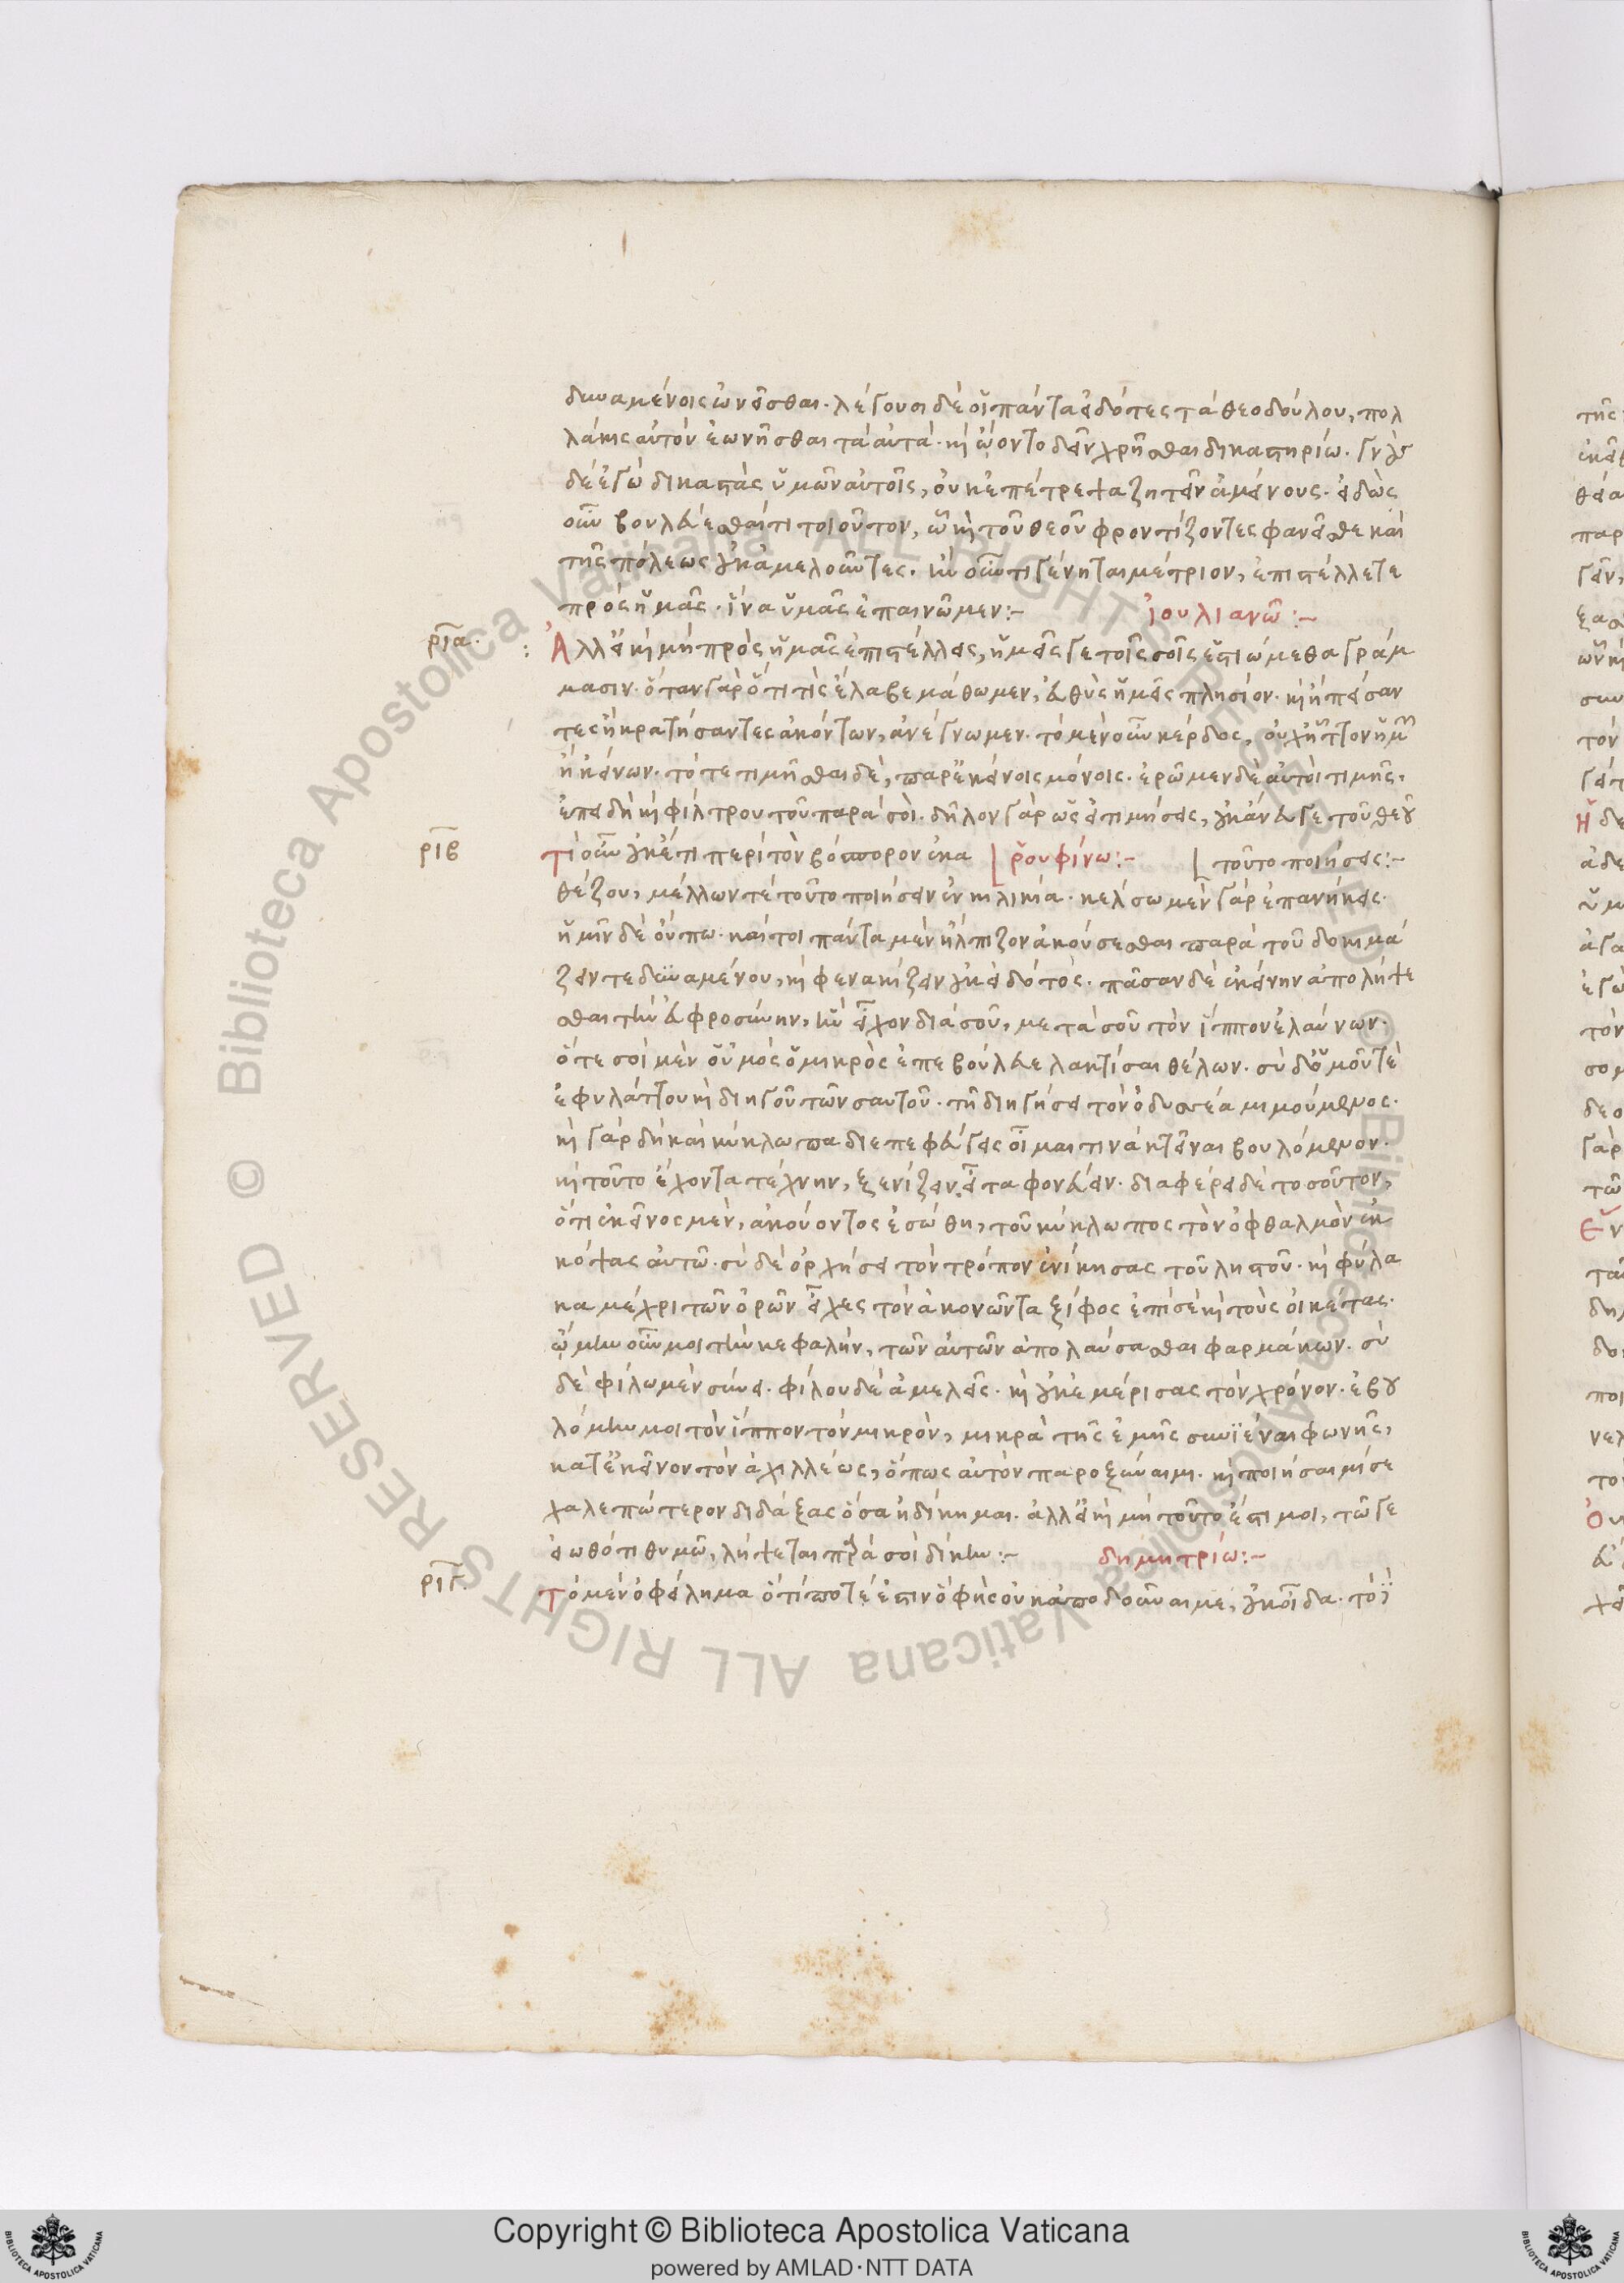 δυναμένοις ὠνεῖσθαι. λέγουσι δὲ οἱ πάντα εἰδότες τὰ θεοδούλου, πολ
λάκις αὐτὸν ἐωνῆσθαι τὰ αὐτά. καὶ ᾤοντο δεῖν χρῆσθαι δικαστηρίῳ.
δὲ ἐγὼ δικαστὰς ὑμῶν αὐτοῖς, οὐκ ἐπέτρεψα ζητεῖν ἀμείνους. εἰδὼς
οὖν βουλεύεσθαί τι τοιοῦτον, ᾧ καὶ τοῦ θεοῦ φροντίζοντες φανεῖσθε καὶ
τῆς πόλεως οὐκ ἀμελοῦντες. κἂν οὖν τι γένηται μέτριον, ἐπιστέλλετε
πρὸς ἡμᾶς. ἵνα ὑμᾶς ἐπαινῶμεν:~ ἰουλιανῶ:~
ρια. Ἀλλ' εἰ καὶ μὴ πρὸς ἡμᾶς ἐπιστέλλεις, ἡμεῖς γε τοῖς σοῖς ἑστιώμεθα γράμ
μασιν. ὅταν γὰρ ὅτι τὶς ἔλαβε μάθωμεν, εὐθὺς ἡμεῖς πλησίον. καὶ ἢ πείσαν
τες ἢ κρατήσαντες ἀκόντων, ἀνέγνωμεν. τὸ μὲν οὖν κέρδος, οὐχ ἧττον ἡμῶν
ἢ κείνων. τὸ τετιμῆσθαι δὲ, παρ' ἐκείνοις μόνοις. ἐρῶμεν δὲ αὐτοὶ τιμῆς.
ἐπειδὴ καὶ φίλτρου τοῦ παρὰ σοί. δῆλον γὰρ ὡς εἰ τιμήσεις, οὐκ ἄνευ γε τοῦ θεοῦ
ριβ Τί οὖν οὐκέτι περὶ τὸν βόσπορον ἐκα ῥουφίνω:~ τοῦτο ποιήσεις:~
θέζου, μέλλων τὲ τοῦτο ποιήσειν ἐν κιλικία. κελσω μὲν γὰρ ἐπανήκεις.
ἡμῖν δὲ οὔπω. καίτοι πάντα μὲν ἤλπιζον ἀκούσεσθαι παρὰ τοῦ δοκιμά
ζειν τε δυναμένου, καὶ φενακίζειν οὐκ εἰδότος. πᾶσαν δὲ ἐκείνην ἀπολήψε
σθαι τὴν εὐφροσύνην, ἣν εἶχον διὰ σοῦ, μετὰ σοῦ τὸν ἵππον ἐλαύνων.
ὅτε σοὶ μὲν οὑμὸς ὁ μικρὸς ἐπεβούλευε λακτίσαι θέλων. σὺ δ' ὁμοῦ τὲ
ἐφυλάττου καὶ διηγοῦ τῶν σαυτοῦ. τῇ διηγήσει τὸν ὀδυσσέα μιμούμενος.
καὶ γὰρ δὴ καὶ κύκλωπα διεπεφεύγεις οἶμαι τινὰ κτεῖναι βουλόμενον.
καὶ τοῦτο ἔχοντα τέχνην, ξενίζειν εἶτα φονεύειν. διαφέρει δὲ τοσοῦτον,
ὅτι ἐκεῖνος μὲν, ἀκούοντος ἐσώθη, τοῦ κύκλωπος τὸν ὀφθαλμὸν ἐκ
κόψας αὐτῶ. σὺ δὲ ὀρχήσει τὸν τρόπον ἐνίκησας τοῦ ληστοῦ. καὶ φύλα
κα μέχρι τῶν ὁρῶν εἶχες τὸν ἀκονῶντα ξίφος ἐπὶ σὲ καὶ τοὺς οἰκέτας.
ᾤμην οὖν μοι τὴν κεφαλὴν, τῶν αὐτῶν ἀπολαύσασθαι φαρμάκων. σὺ
δὲ φίλω μὲν σύνει. φίλου δὲ ἀμελεῖς. καὶ οὐκ ἐμέρισας τὸν χρόνον. ἐβου
λόμην μοι τὸν ἵππον τὸν μικρὸν, μικρὰ τῆς ἐμῆς συνϊέναι φωνῆς,
κατ' ἐκεῖνον τὸν ἀχιλλέως, ὅπως αὐτὸν παροξύναιμι. καὶ ποιήσαιμί σε
χαλεπώτερον διδάξας ὅσα ἠδίκημαι. ἀλλ' εἰ καὶ μὴ τοῦτο ἔστι μοι, τῶ γε
εἰωθότι θυμῶ, λήψεται παρὰ σοὶ δίκην:~ δημητρίω:~
ριγ. Τὸ μὲν ὀφείλημα ὅ τί ποτέ ἐστιν ὃ φὴς οὐκ ἀποδοῦναι με, οὐκ οἶδα. τὸ ἵ